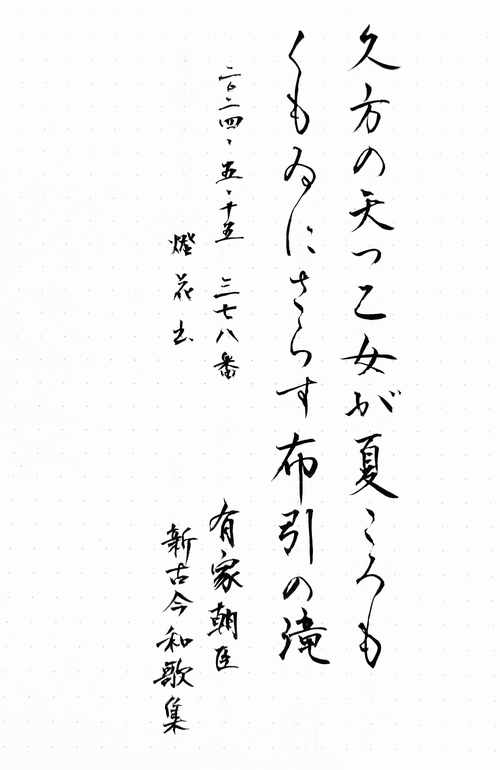 久方の天つ乙女が夏ころも
くもゐにさらす布引の滝
二〇二四、五、十五 三七八番
有家朝臣
燈花书
新古今和歌集